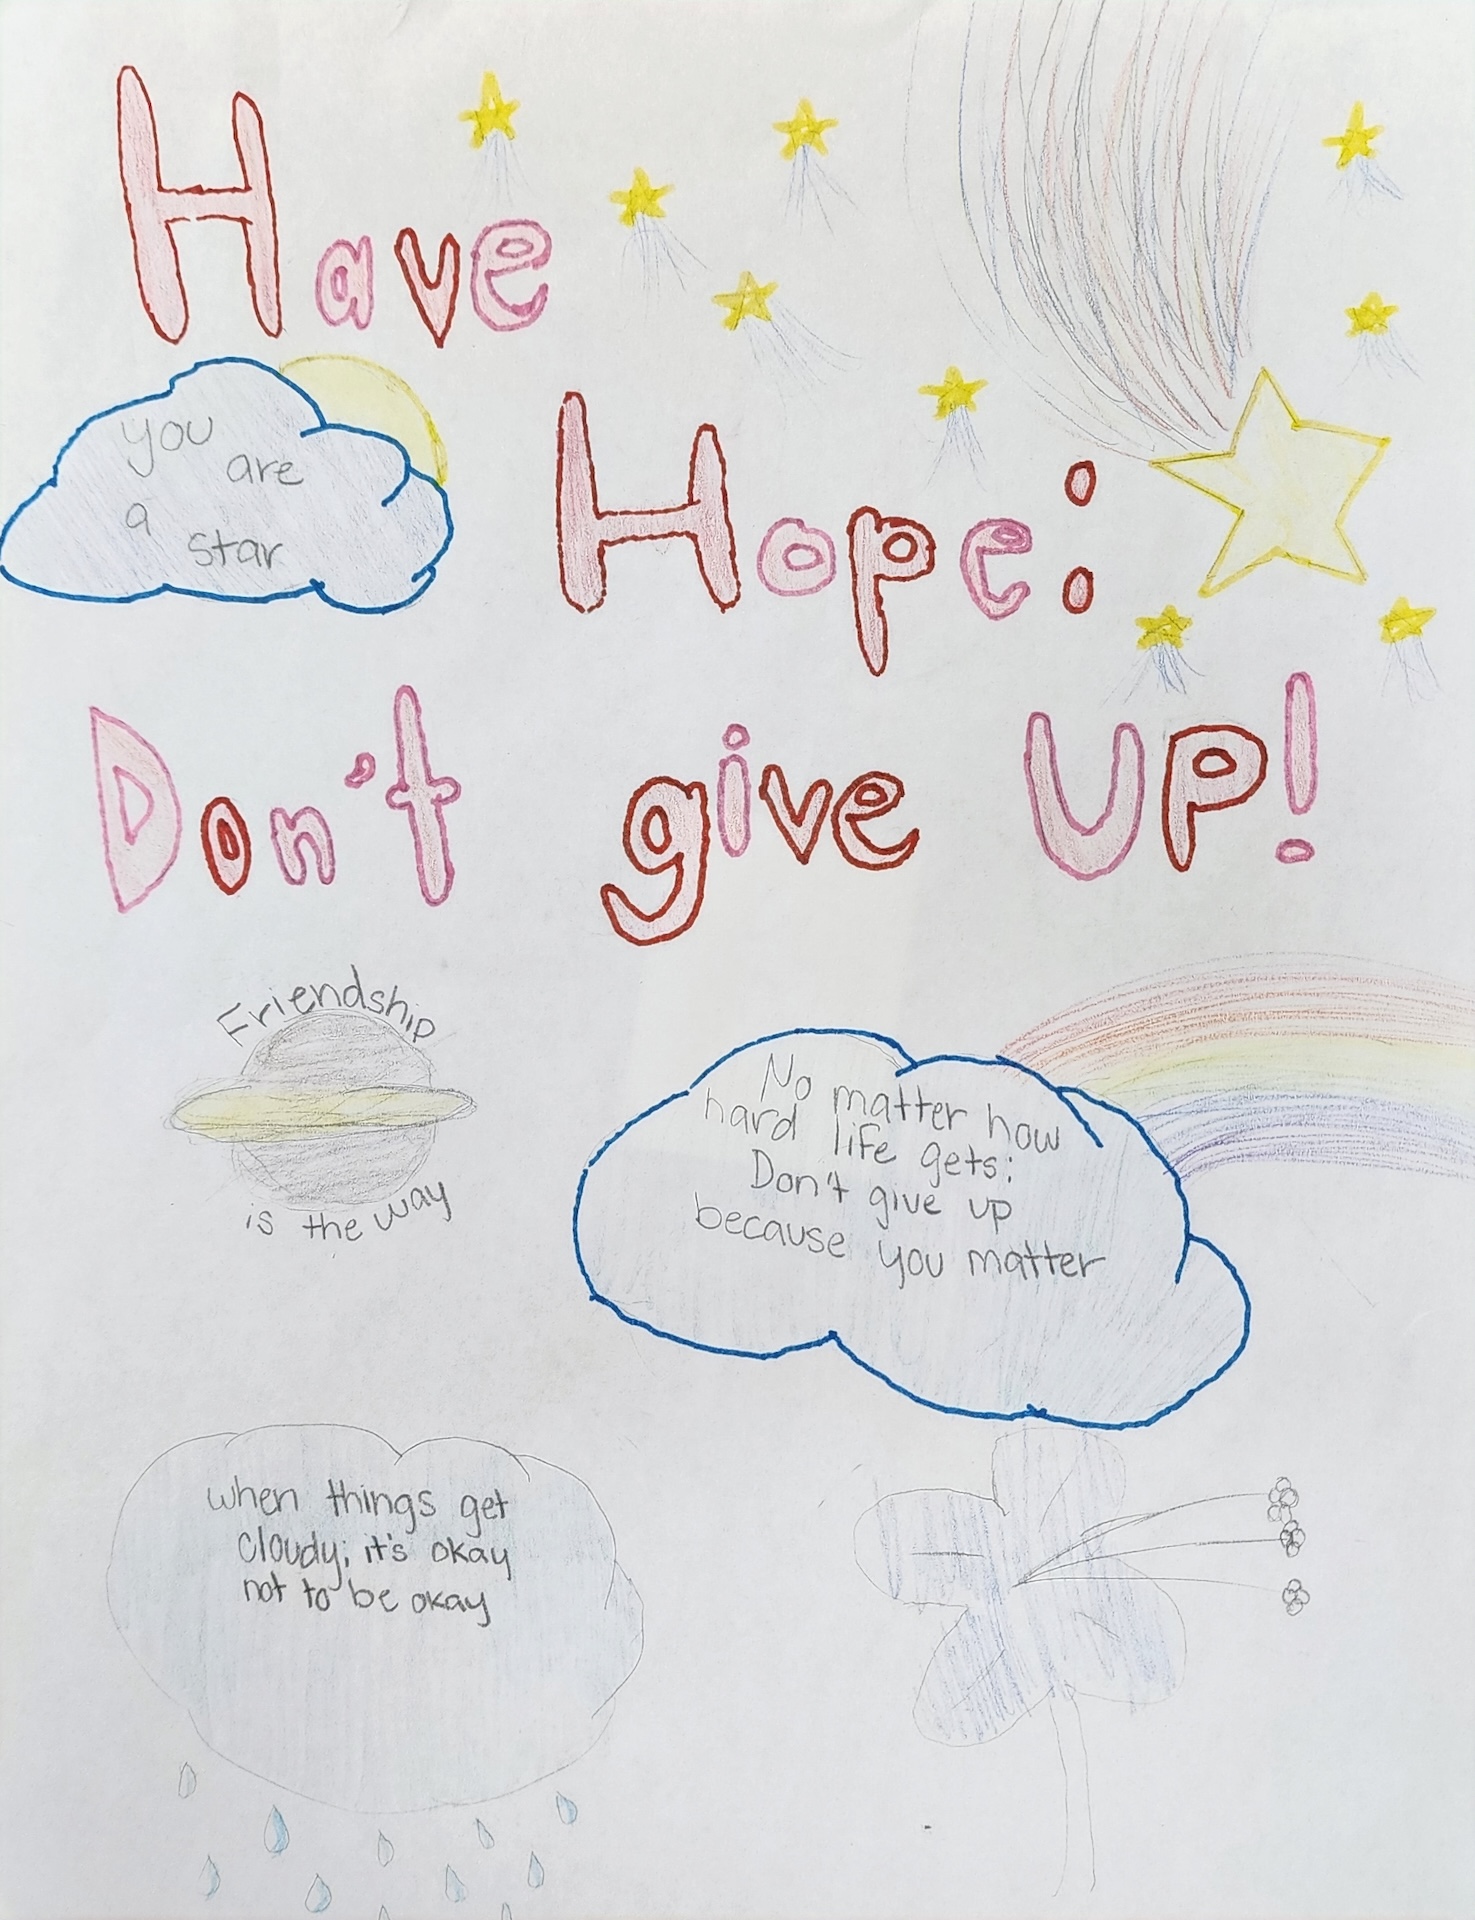 Have
you
are
a
star
Hope:
Don't give UP!
Friendship
is the way
No matter how
hard life gets;
Don't give up
because you matter
when things get
cloudy; it's okay
not to be okay